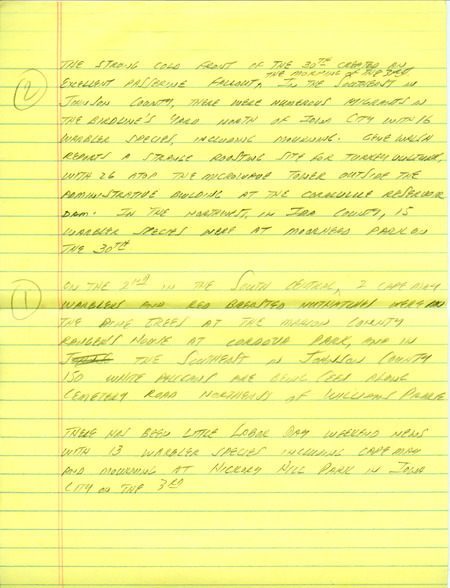 THE STRONG COLD FRONT OF THE 30TH CREATED AN
THE MORNING OF THE
EXCELLENT PASSERINE FALLOUT, IN THE SOUTHEAST IN
② JOHNSON COUNTY, THERE WERE NUMEROUS MIGRANTS IN
THE BIRDLINE'S YARD NORTH OF IOWA CITY WITH 16
WARBLER SPECIES, INCLUDING MOURNING. GENE WALSH
REPORTS A STRANGE ROOSTING SITE FOR TURKEY VULTURE,
WITH 26 ATOP THE MICROWAVE TOWER OUTSIDE THE
ADMINISTRATIVE BUILDING AT THE CORALVILLE RESERVOIR
DAM. IN THE NORTHWEST, IN IDA COUNTY, 15
WARBLER SPECIES WERE AT MOORHEAD PARK ON
THE 30TH
ON THE 2ND IN THE SOUTH CENTRAL, 2 CAPE MAY
① WARBLERS AND RED BREASTED NUTHATCHES WERE IN
THE PINE TREES AT THE MARION COUNTY
RANGER'S HOUSE AT CORDOVA PARK, AND IN
THE SOUTHEAST IN JOHNSON COUNTY
150 WHITE PELICANS ARE BEING SEEN ALONG
CEMETERY ROAD NORTHEAST OF WILLIAMS PRAIRIE
THERE HAS BEEN LITTLE LABOR DAY WEEKEND NEWS
WITH 13 WARBLER SPECIES INCLUDING CAPE MAY
AND MOURNING AT HICKORY HILL PARK IN IOWA
CITY ON THE 3RD